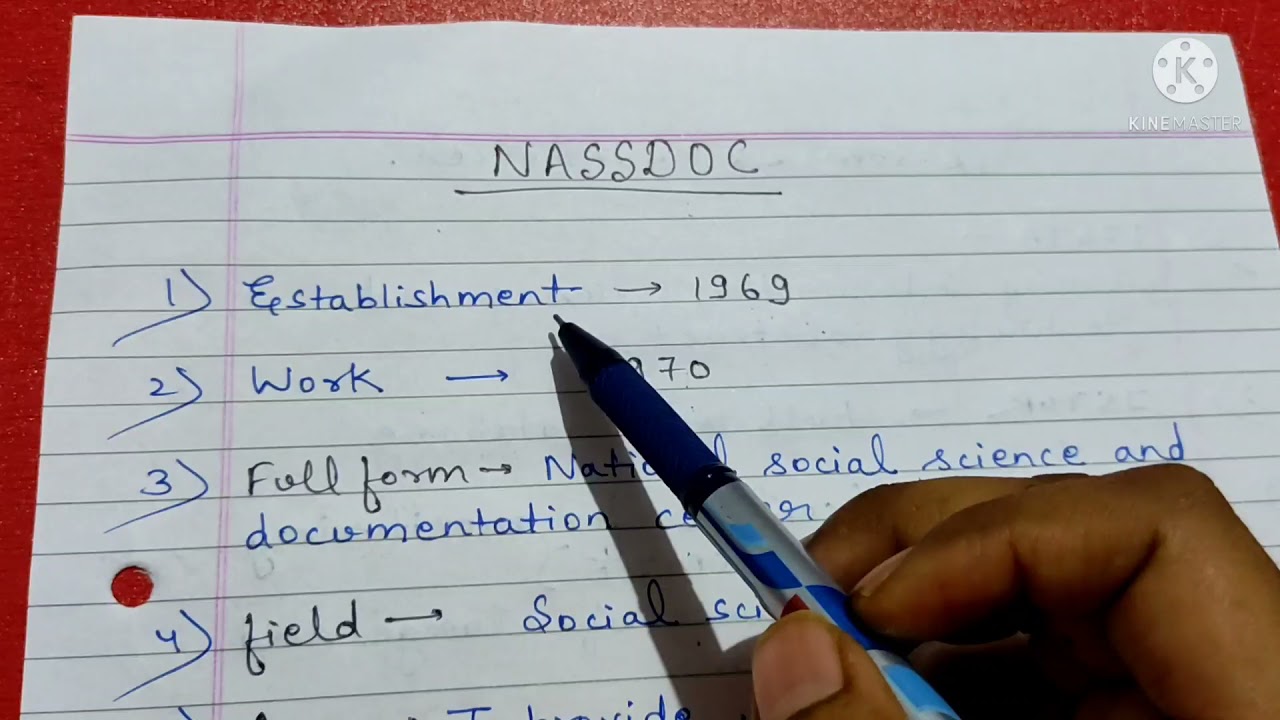 K
KINEMASTER
NASSDOC
1) Establishment → 1969
2) Work → 970
3) Full form → social science and
documentation
4) field → Social